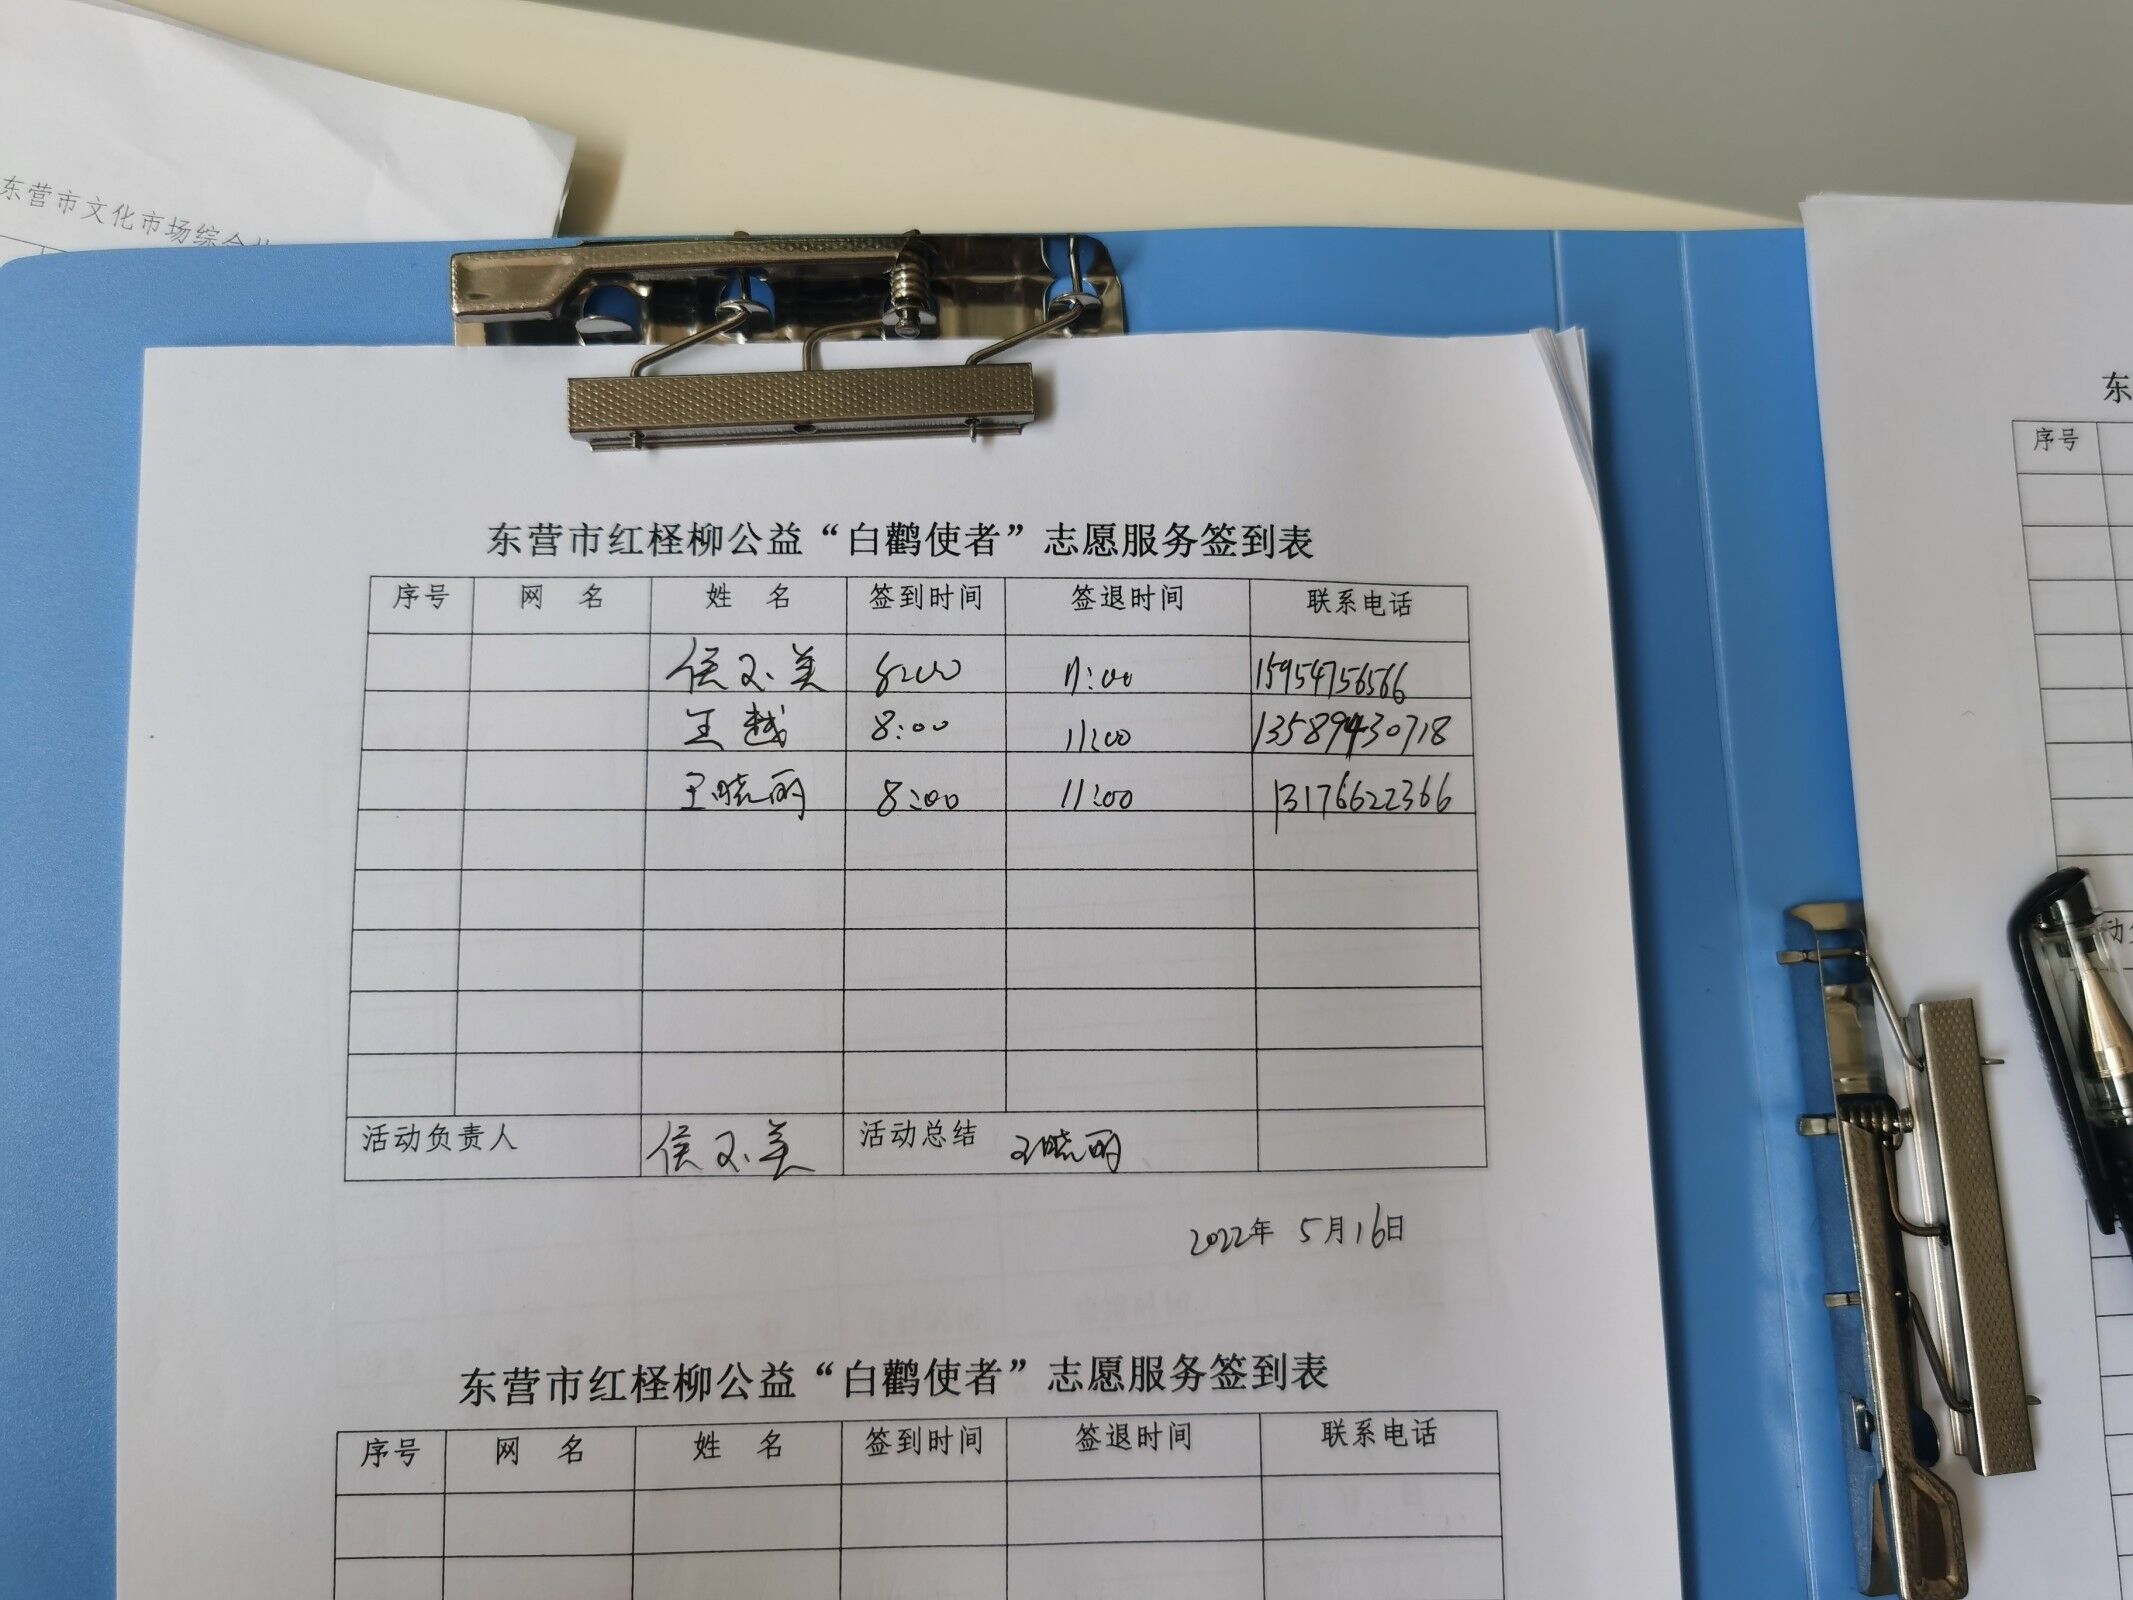 东营市文化市场综合
东营市红柽柳公益“白鹳使者”志愿服务签到表
序号 网 名 姓 名 签到时间 签退时间 联系电话
侯又美 8:00 11:00 15954756566
王越 8:00 11:00 13589430718
王晓丽 8:00 11:00 13176622366
活动负责人 侯又美 活动总结 王晓丽
2022年 5月16日
东营市红柽柳公益“白鹳使者”志愿服务签到表
序号 网 名 姓 名 签到时间 签退时间 联系电话
东
序号